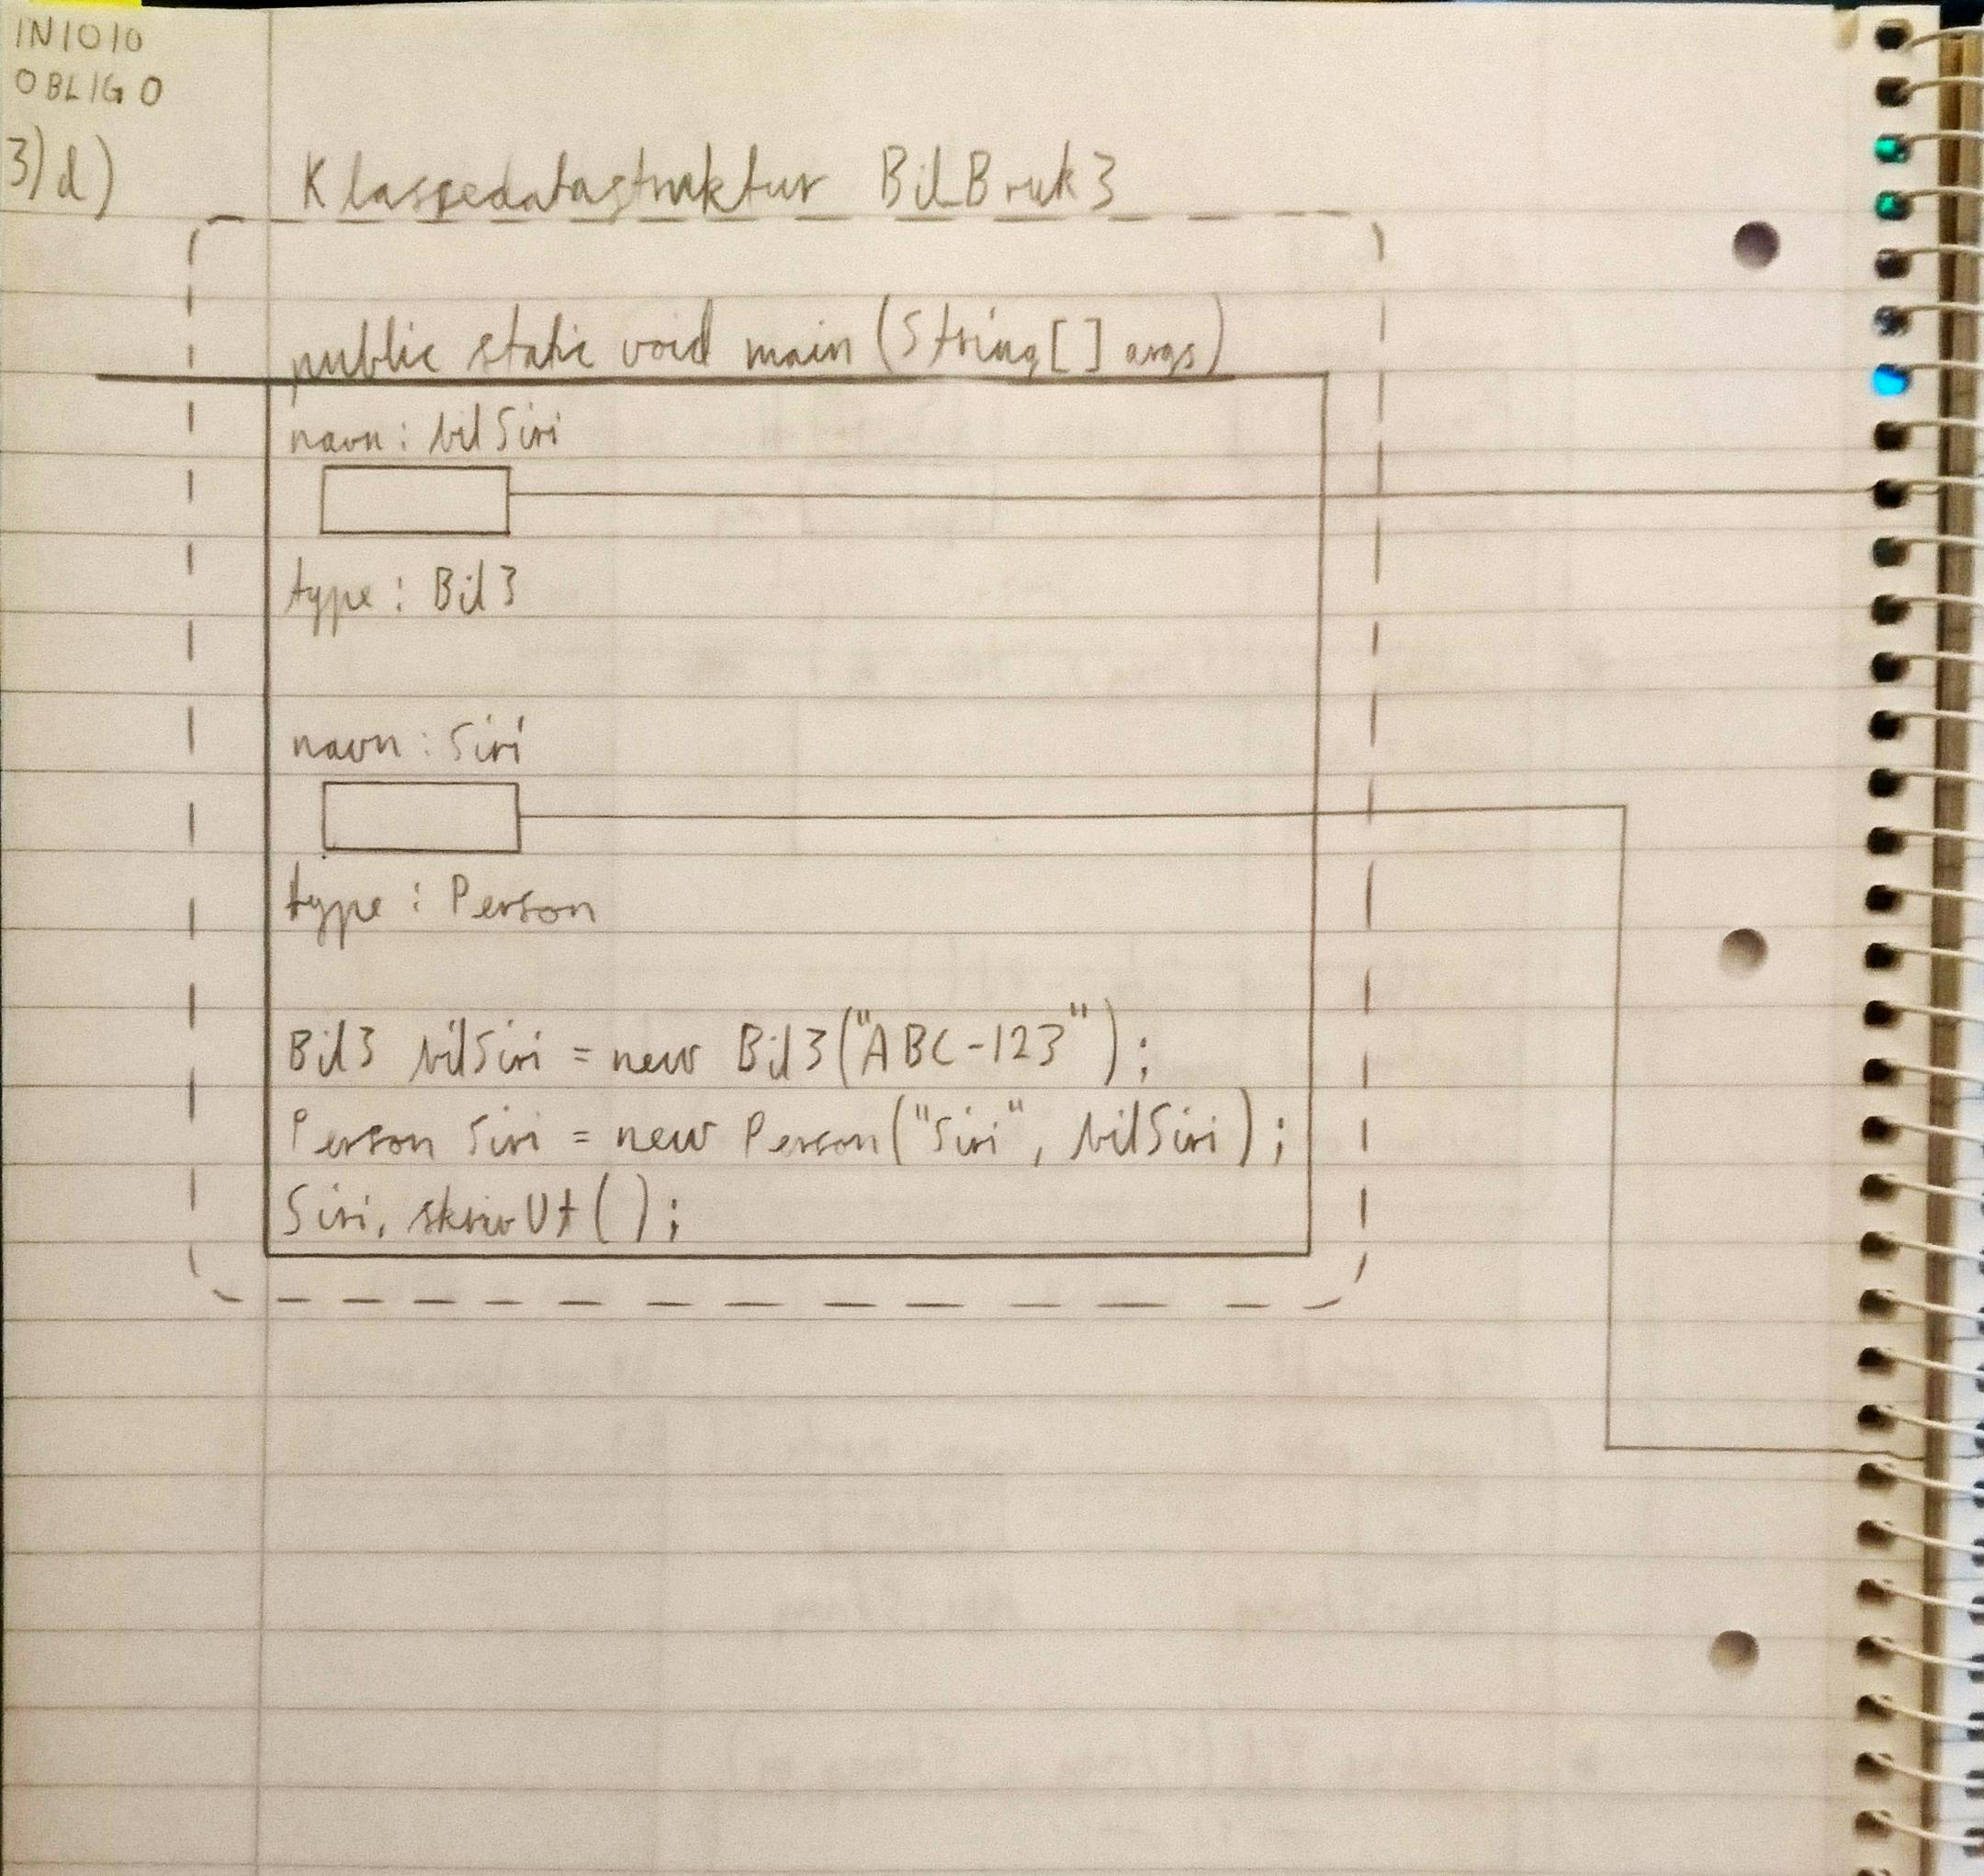 IN1010
OBLIG 0
3)d)
Klassedatastruktur BilBruk3
public static void main (String[] args)
navn: bilSiri
type: Bil3
navn: Siri
type: Person
Bil3 bilSiri = new Bil3("ABC-123");
Person Siri = new Person("Siri", bilSiri);
Siri.skrivUt();